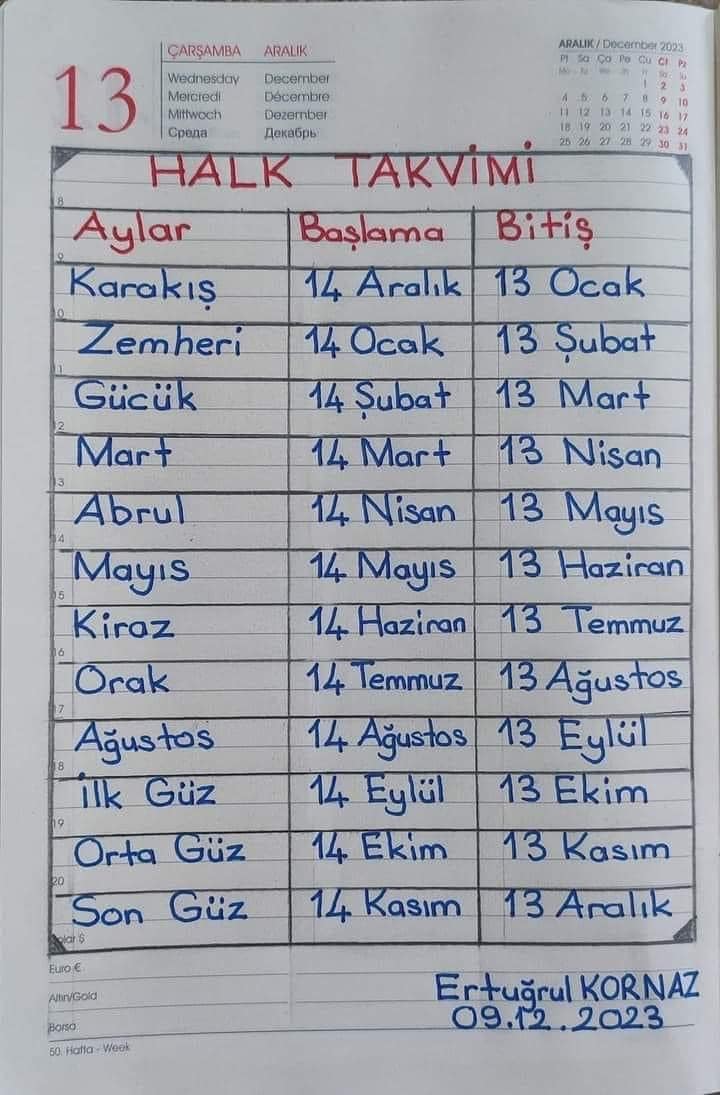 13
ÇARŞAMBA ARALIK
Wednesday December
Mercredi Décembre
Mittwoch Dezember
Среда Декабрь
ARALIK / December 2023
Pt Sa Ça Pe Cu Ct Pz
1 2 3
4 5 6 7 8 9 10
11 12 13 14 15 16 17
18 19 20 21 22 23 24
25 26 27 28 29 30 31
HALK TAKVİMİ
8
Aylar Başlama Bitiş
9
Karakış 14 Aralık 13 Ocak
10
Zemheri 14 Ocak 13 Şubat
11
Gücük 14 Şubat 13 Mart
12
Mart 14 Mart 13 Nisan
13
Abrul 14 Nisan 13 Mayıs
14
Mayıs 14 Mayıs 13 Haziran
15
Kiraz 14 Haziran 13 Temmuz
16
Orak 14 Temmuz 13 Ağustos
17
Ağustos 14 Ağustos 13 Eylül
18
İlk Güz 14 Eylül 13 Ekim
19
Orta Güz 14 Ekim 13 Kasım
20
Son Güz 14 Kasım 13 Aralık
Dolar $
Euro €
Altın/Gold
Borsa
50. Hafta - Week
Ertuğrul KORNAZ
09.12.2023